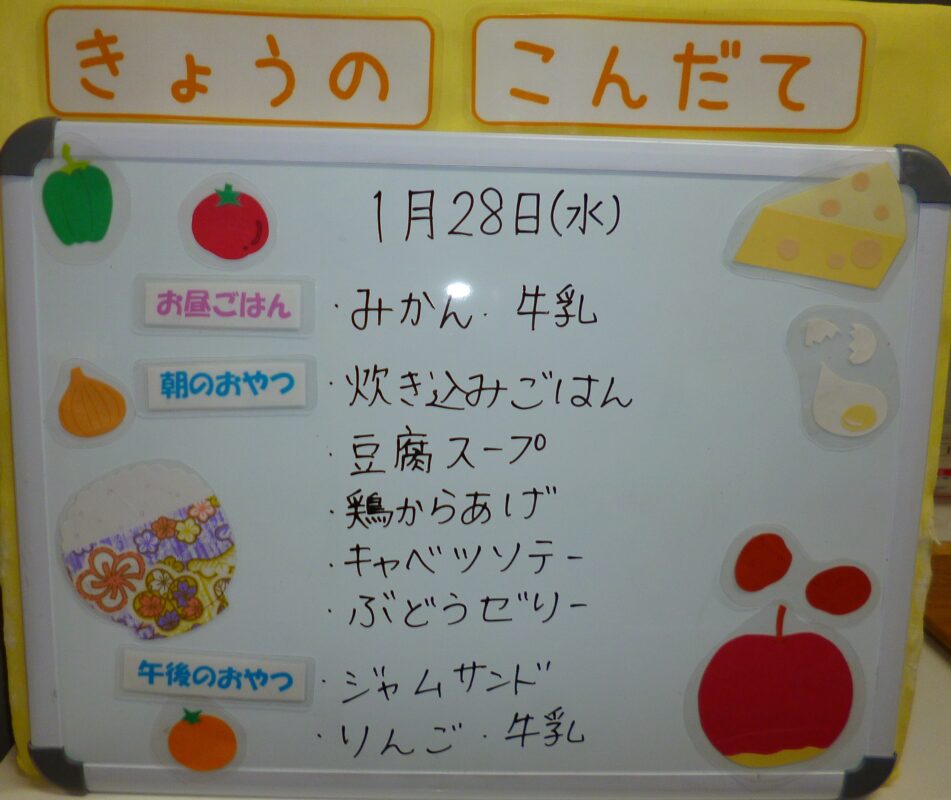 きょうの こんだて
1月28日(水)
お昼ごはん ・みかん・牛乳
朝のおやつ ・炊き込みごはん
・豆腐スープ
・鶏からあげ
・キャベツソテー
・ぶどうゼリー
午後のおやつ ・ジャムサンド
・りんご・牛乳